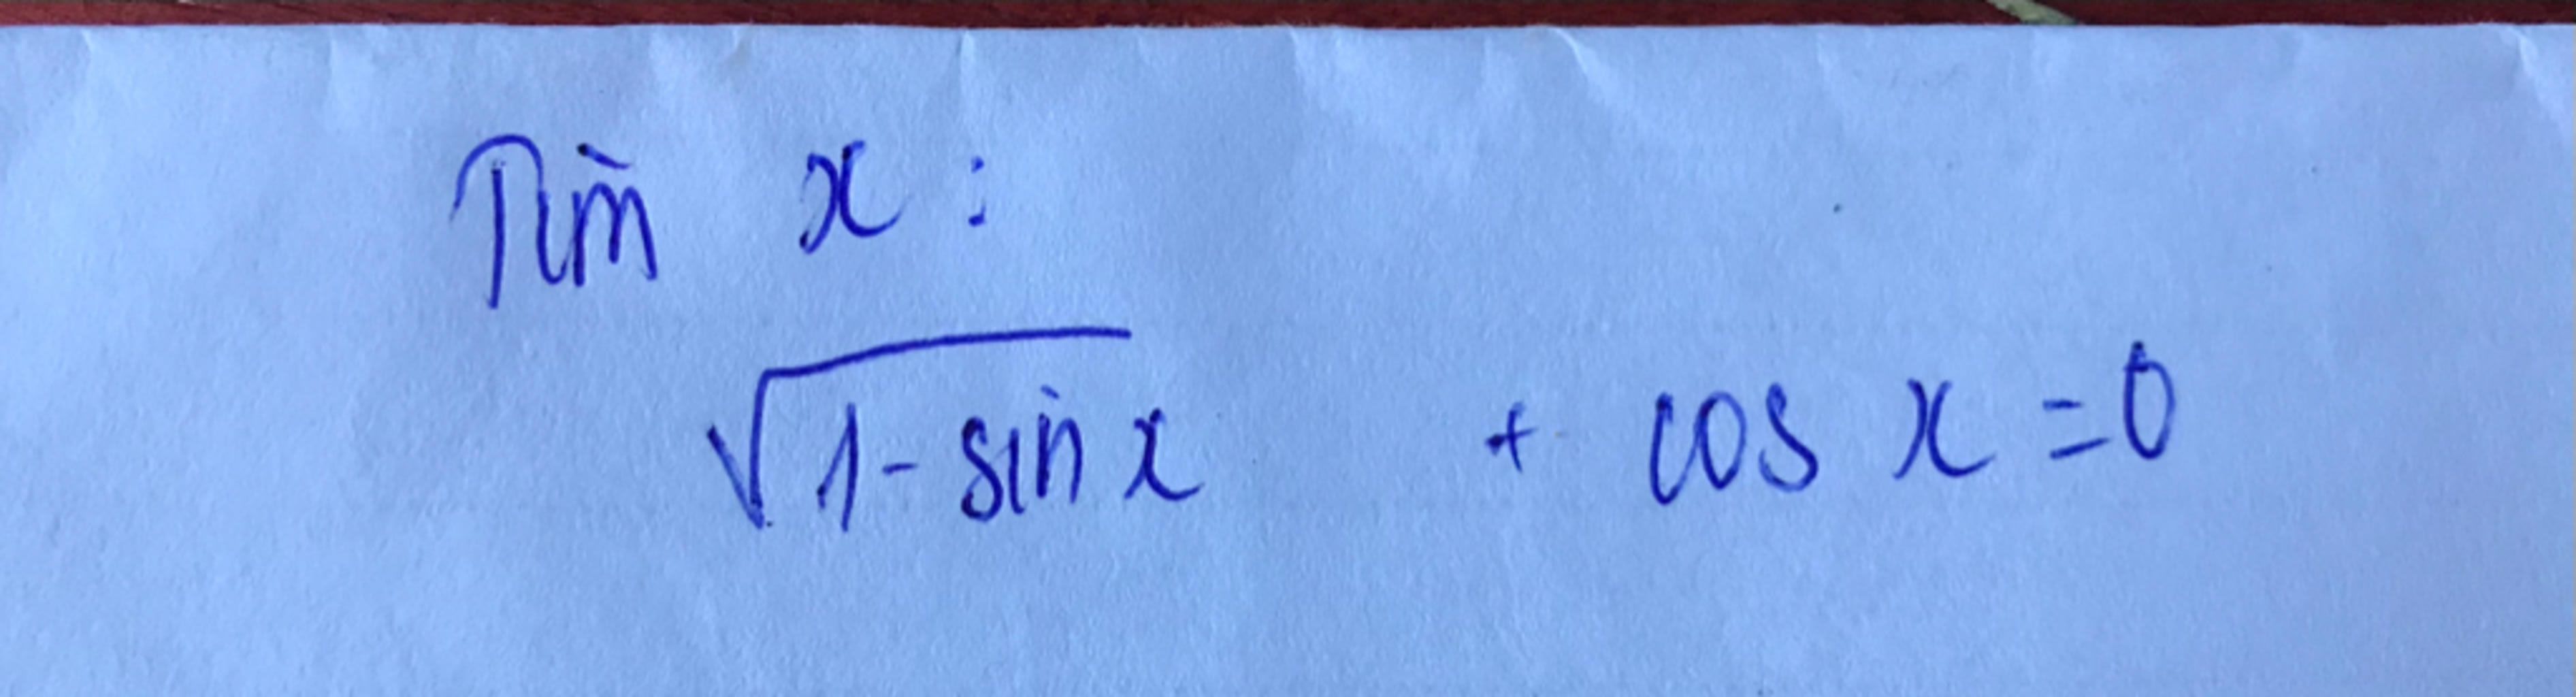 Tìm x :
√(1 - sin x) + cos x = 0